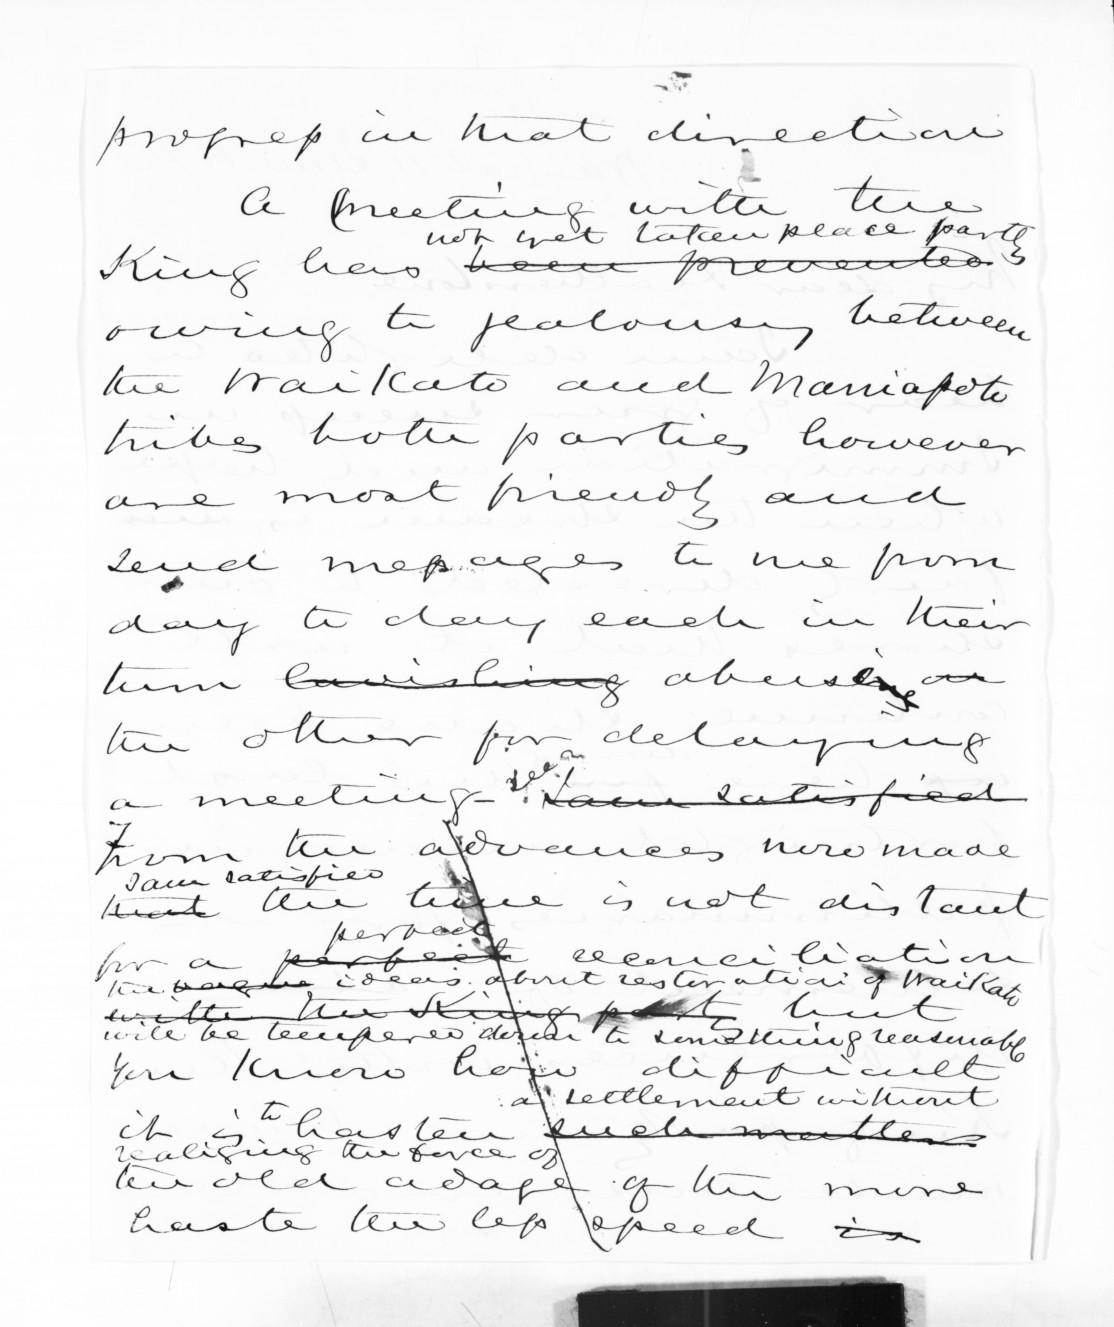 progress in that direction
A meeting with the
not yet taken place partly
King has been prevented
owing to jealousy between
the Waikato and Maniapoto
tribes both parties however
are most friendly and
send messages to me from
day to day each in their
turn lavishing abusing on
the other for delaying
a meeting - I am satisfied
From the advances now made
I am satisfied
that the time is not distant
perfect
for a perfect reconciliation
the vague ideas about restoration of Waikato
with the King party but
will be tempered down to something reasonable
you know how difficult
a settlement without
it is to hasten such matters
realizing the force of
the old adage of the more
haste the less speed is